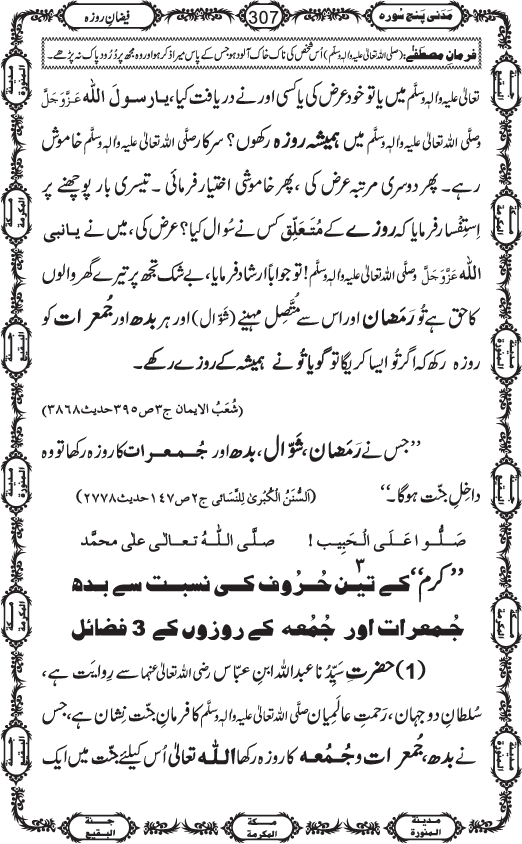 مَدَنی پنج سورہ 307 فیضانِ روزہ
فرمانِ مصطفےٰ: (صلی اللہ تعالیٰ علیہ والہٖ وسلّم) اُس شخص کی ناک خاک آلود ہو جس کے پاس میرا ذکر ہو اور وہ مجھ پر دُرُود پاک نہ پڑھے۔
تعالیٰ علیہ والہٖ وسلَّم میں یا تو خود عرض کی یا کسی اور نے دریافت کیا، یارسولَ اللہ عَزَّوَجَلَّ
وصلَّی اللہ تعالیٰ علیہ والہٖ وسلَّم میں ہمیشہ روزہ رکھوں؟ سرکار صلَّی اللہ تعالیٰ علیہ والہٖ وسلَّم خاموش
رہے۔ پھر دوسری مرتبہ عرض کی، پھر خاموشی اختیار فرمائی۔ تیسری بار پوچھنے پر
اِستِفْسار فرمایا کہ روزے کے مُتَعَلِّق کس نے سُوال کیا؟ عرض کی، میں نے یانبی
اللہ عَزَّوَجَلَّ وصلَّی اللہ تعالیٰ علیہ والہٖ وسلَّم! تو جواباً ارشاد فرمایا، بے شک تجھ پر تیرے گھر والوں
کا حق ہے تُو رَمَضان اور اس سے مُتَّصِل مہینے (شَوّال) اور ہر بدھ اور جُمعرات کو
روزہ رکھ کہ اگر تُو ایسا کریگا تو گویا تُو نے ہمیشہ کے روزے رکھے۔
(شُعَبُ الایمان ج۳ص۳۹۵حدیث۳۸۶۸)
’’جس نے رَمَضان، شَوّال، بدھ اور جُمعرات کا روزہ رکھا تو وہ
داخلِ جنّت ہوگا۔‘‘ (اَلسُّنَنُ الْکُبْریٰ لِلنَّسَائی ج۲ص۱۴۷حدیث۲۷۷۸)
صَلُّوا عَلَی الْحَبِیب! صلَّی اللّٰہُ تعالٰی علٰی محمَّد
’’کرم‘‘ کے تین۳ حُرُوف کی نسبت سے بدھ
جُمعرات اور جُمُعہ کے روزوں کے 3 فضائل
(1) حضرتِ سیِّدُنا عبداللہ ابنِ عبّاس رضی اللہ تعالیٰ عنہما سے رِوایَت ہے،
سُلطانِ دو جہان، رَحمتِ عالَمِیان صلَّی اللہ تعالیٰ علیہ والہٖ وسلَّم کا فرمانِ جنّت نِشان ہے، جس
نے بدھ، جُمعرات و جُمُعہ کا روزہ رکھا اللہ تعالیٰ اُس کیلئے جنّت میں ایک
مدینۃ المنورۃ
مکۃ المکرمۃ
جنۃ البقیع